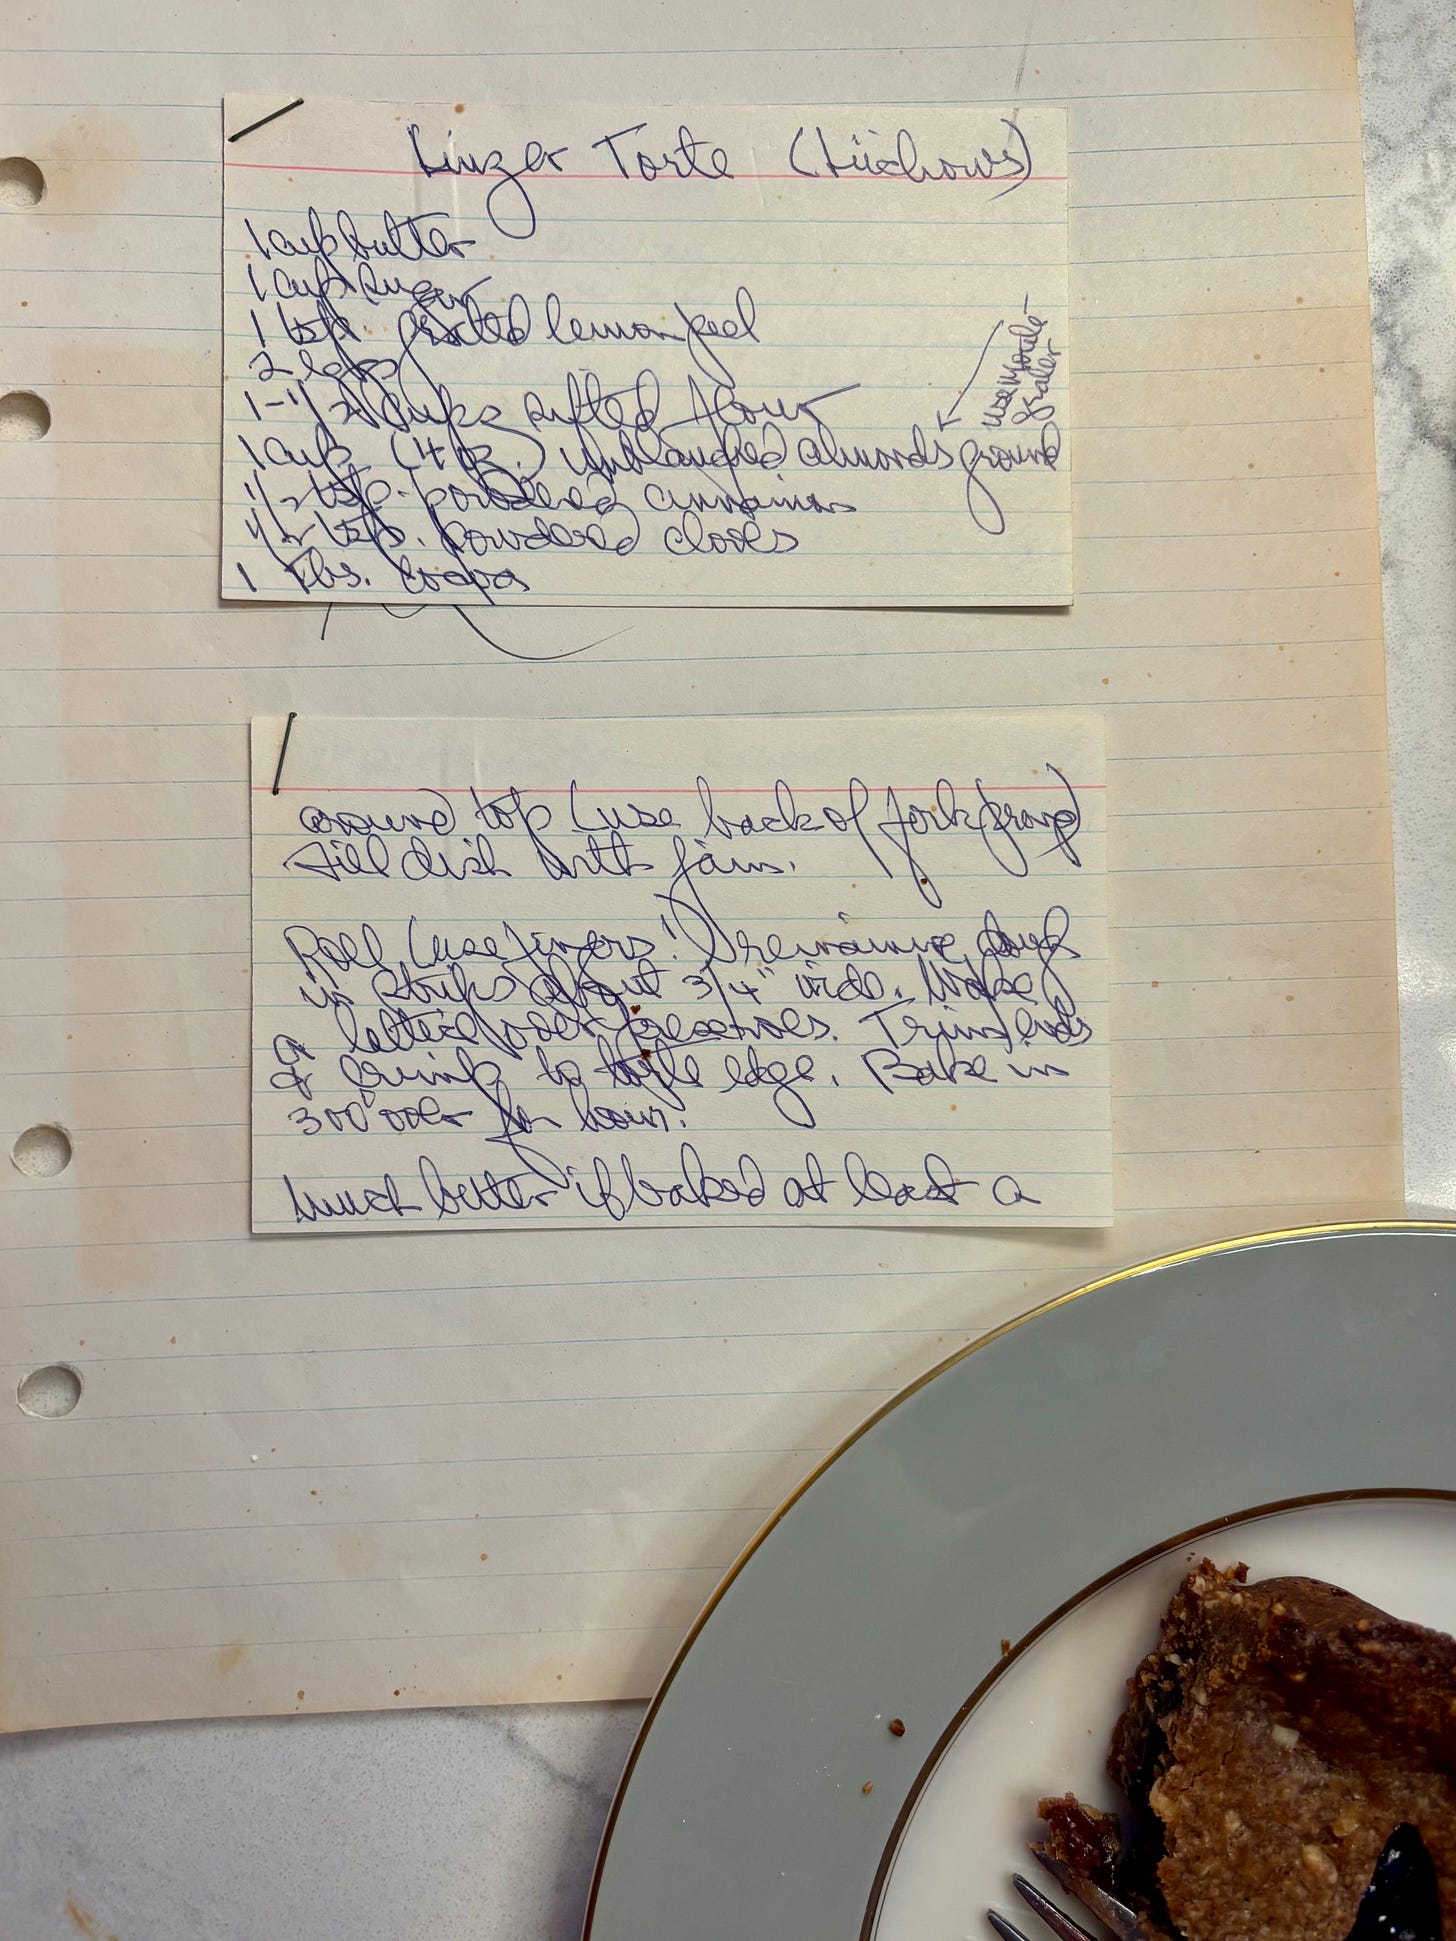 Linzer Torte (Lüchows)
1 cup butter
1 cup sugar
1 tsp. grated lemon peel
2 eggs
1-1/2 cups sifted flour
1 cup (4 oz.) unblanched almonds ground
use Mouli-
grater
1/2 tsp. powdered cinnamon
1/2 tsp. powdered cloves
1 Tbs. cocoa
around top (use back of fork prong)
Fill dish with jam.
Roll (use fingers!) remaining dough
in strips about 3/4" wide. Make
a lattice over preserves. Trim ends
& crimp to torte edge. Bake in
300° oven for hour.
Much better if baked at least a